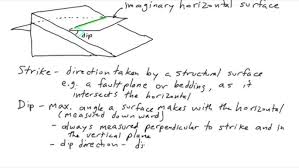 imaginary horizontal surface
dip
Strike - direction taken by a structural surface
e.g. a fault plane or bedding, as it
intersects the horizontal
Dip - max. angle a surface makes with the horizontal
(measured downward)
- always measured perpendicular to strike and in
the vertical plane
- dip direction - di